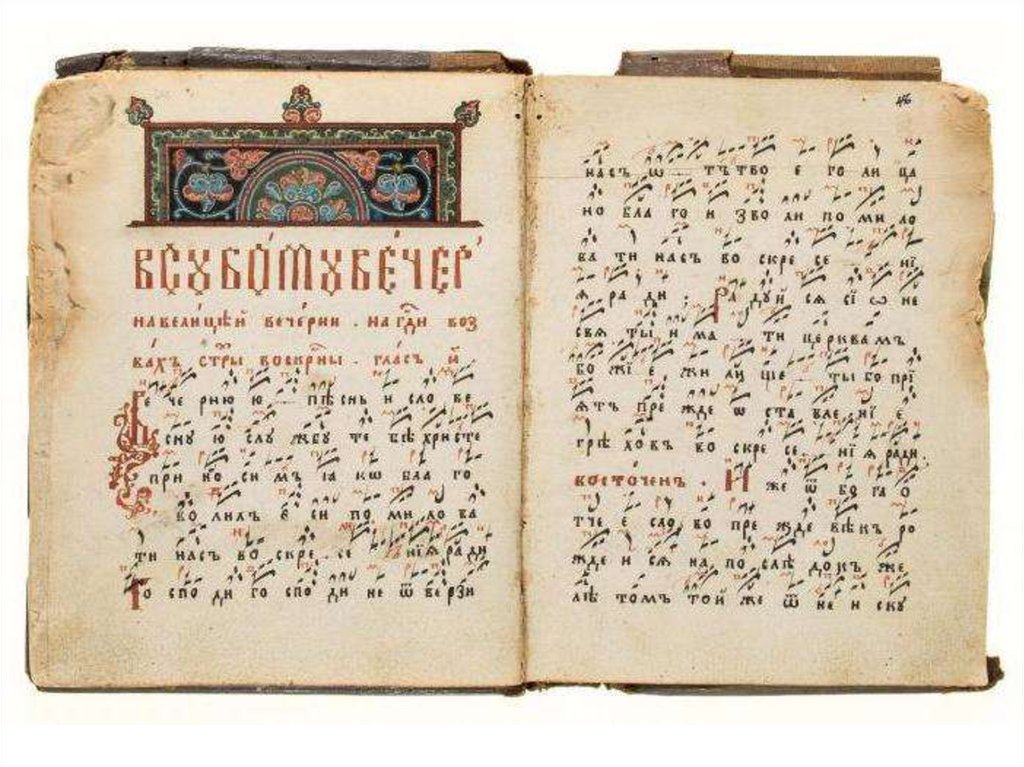 ВСꙊБО́ТꙊВЕ́ЧЕР
навели́цѣй вече́рни . на гд҇и воз
ва́хъ стр҇ы воскр҇ны . гла́съ и҃
Ве че рнюю пѣ снь и сло ве
сну ю слу жбу те бѣ христе
при но си мъ ꙗ кѡ бла го
во ли лъ е си по ми ло ва
ти насъ во скре се ні я ра ди
Го спо ди го спо ди не ѿ ве рзи
46
насъ ѿ тъ тво е го ли ца
но бла го и зво ли по ми ло
ва ти насъ во скре се ні
я ра ди ; Ра ду й ся сі ѡ не
свя ты́ й ма ти церквамъ
бо жі е жи ли ще ты бо прі
ятъ пре жде ѡ ста вле ні е
грѣ ховъ во скре се ні я ради
восто́ченъ . И же ѿ бо га о
тче е сло во пре жде вѣкъ ро
жде и ся на по слѣ докъ же
лѣ томъ той же ѿ не и ску